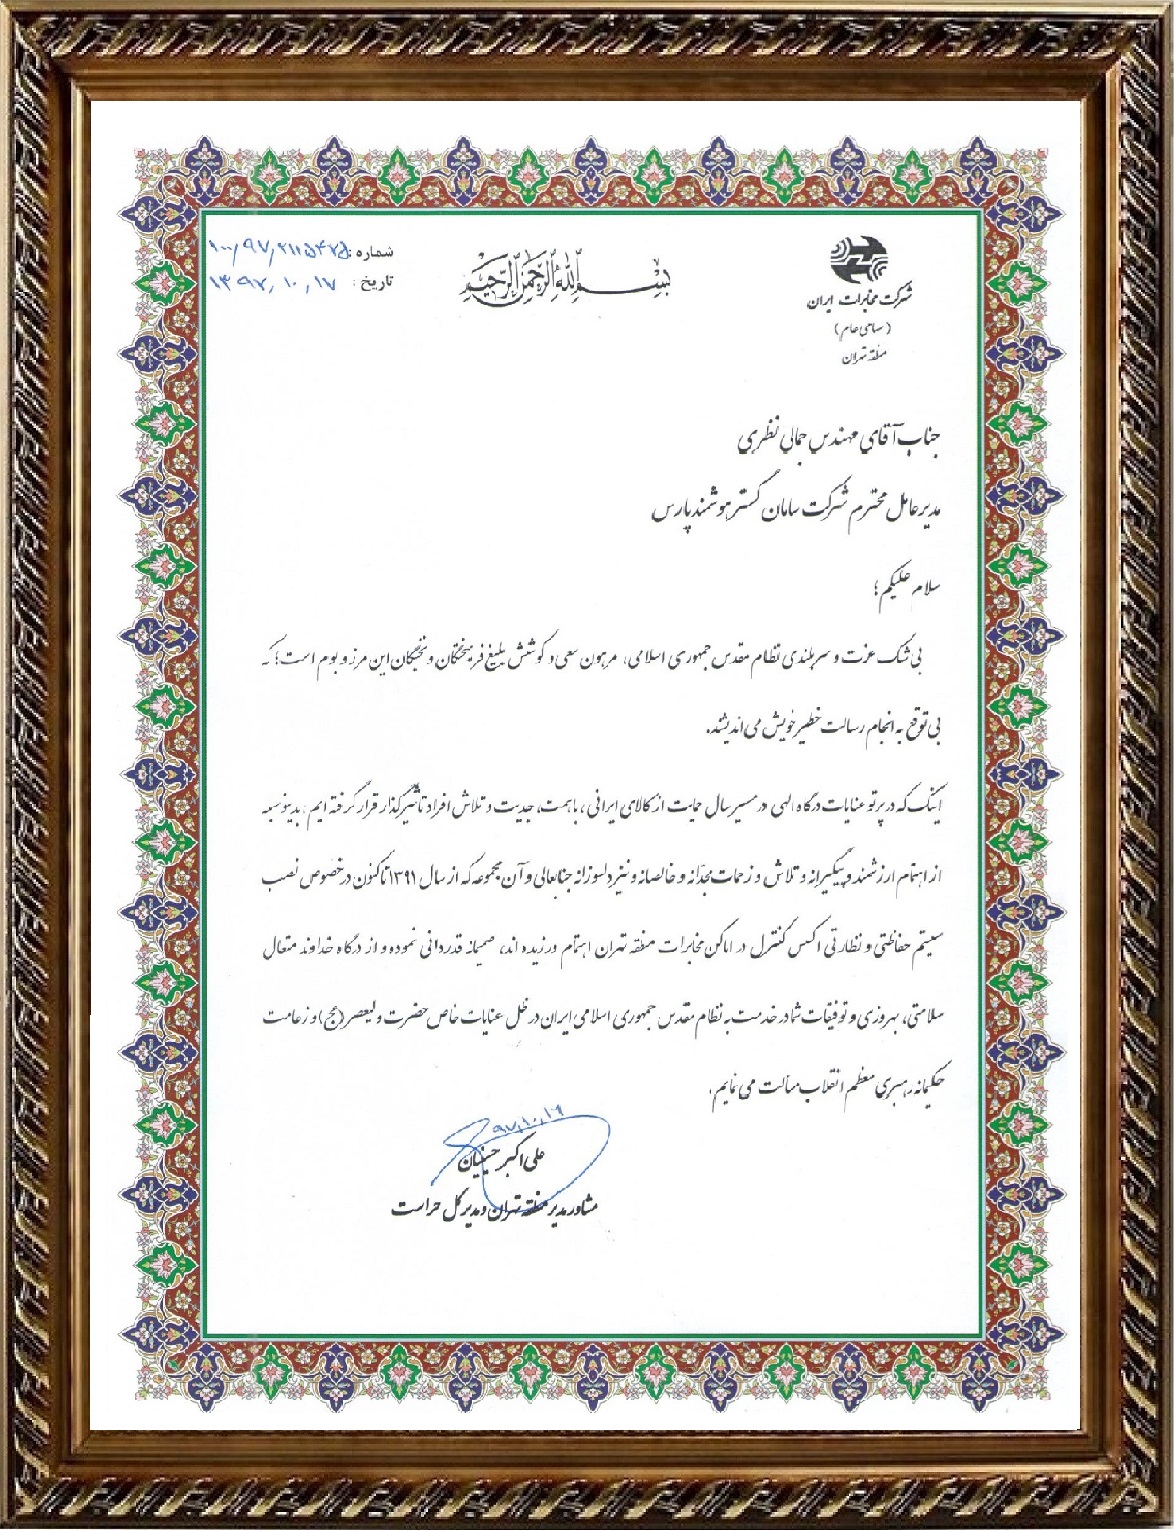 بسم الله الرحمن الرحیم
شرکت مخابرات ایران
(سهامی عام)
منطقه تهران
شماره :
تاریخ : ۱۳۹۷/۱۰/۱۷
جناب آقای مهندس جمالی نظری
مدیر عامل محترم شرکت سامان گستر هوشمند پارس
سلام علیکم؛
بی شک عزت و سربلندی نظام مقدس جمهوری اسلامی، مرهون سعی و کوشش بلیغ فرهیختگان و نخبگان این مرز و بوم است؛ که
بی توقع به انجام رسالت خطیر خویش می اندیشند.
اینک که در پرتو عنایات درگاه الهی در مسیر سال حمایت از کالای ایرانی، با همت، جدیت و تلاش افراد تاثیرگذار قرار گرفته ایم، بدینوسیله
از اهتمام ارزشمند و پیگیرانه و تلاش و زحمات مجدّانه و خالصانه و نیز دلسوزانه جنابعالی و آن مجموعه که از سال ۱۳۹۱ تاکنون در خصوص نصب
سیستم حفاظتی و نظارتی اکسس کنترل در اماکن مخابرات منطقه تهران اهتمام ورزیده اند، صمیمانه قدردانی نموده و از درگاه خداوند متعال
سلامتی، بهروزی و توفیقات شما در خدمت به نظام مقدس جمهوری اسلامی ایران در ظل عنایات خاص حضرت ولیعصر (عج) و زعامت
حکیمانه رهبری معظم انقلاب مسألت می نمایم.
علی اکبر حسینیان
مشاور مدیر منطقه تهران و مدیر کل حراست